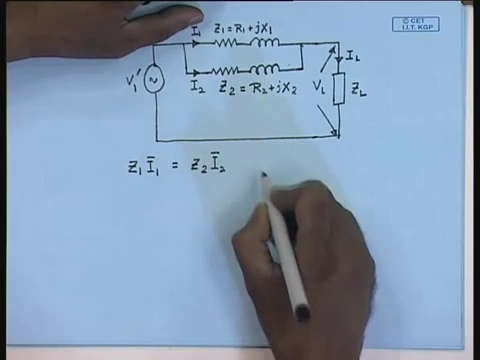 © CET
I.I.T. KGP
I₁ Z₁ = R₁ + jX₁
I_L
V₁' I₂ Z₂ = R₂ + jX₂ V_L Z_L
Z₁ Ī₁ = Z₂ Ī₂